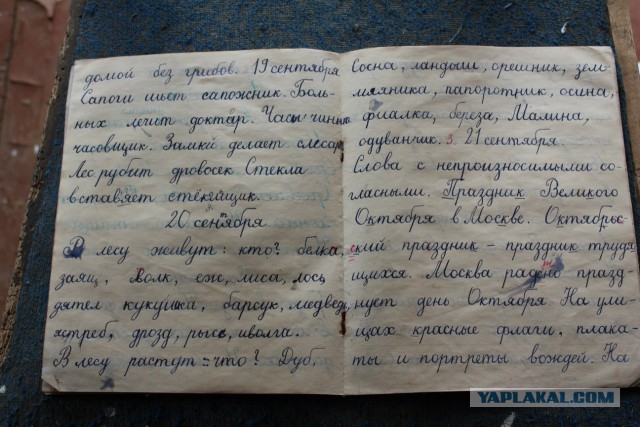 домой без грибов. 19 сентября
Сапоги шьет сапожник. Боль-
ных лечит доктар. Часы чинит
часовщик. Замки делает слесарь
Лес рубит дровосек Стекла
вставляет стекёльщик.
20 сентября
В лесу живут: кто? белка,
заящ, волк, еж, лиса, лось,
дятел кукушка, барсук, медведь,
ястреб, дрозд, рысь, иволга.
В лесу растут: что? Дуб,
Сосна, ландыш, орешник, зем-
мляника, папоротник, осина,
фиалка, береза, Малина,
одуванчик. 3. 21 сентября.
Слова с непроизносимыми со-
гласными. Праздник Великого
Октября в Москве. Октябрьс-
ский праздник - праздник трудя-
щихся. Москва празд-
нует день Октября На ули-
цах красные флаги, плака-
ты и портреты вождей. На
YAPLAKAL.COM